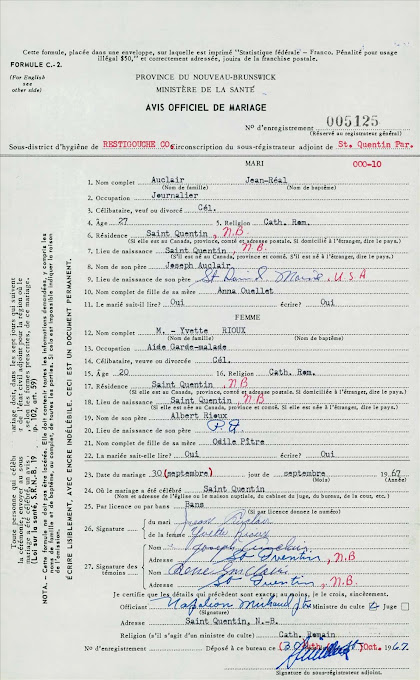 Cette formule, placée dans une enveloppe, sur laquelle est imprimé "Statistique fédérale - Franco. Pénalité pour usage
illégal $50," et correctement adressée, jouira de la franchise postale.
FORMULE C.-2.
(For English
see
other side)
PROVINCE DU NOUVEAU-BRUNSWICK
MINISTÈRE DE LA SANTÉ
AVIS OFFICIEL DE MARIAGE
N° d'enregistrement 005125
(Réservé au registrateur général)
Sous-district d'hygiène de RESTIGOUCHE CO. Circonscription du sous-registraire adjoint de St. Quentin Par.
MARI 000-10
1. Nom complet Auclair Jean-Réal
(Nom de famille) (Nom de baptême)
2. Occupation Journalier
3. Célibataire, veuf ou divorcé Cél.
4. Age 27 5. Religion Cath. Rom.
6. Résidence Saint Quentin, N.B
(Si elle est au Canada, province, comté et adresse postale. Si domicilié à l'étranger, dire le pays.)
7. Lieu de naissance Saint Quentin, N.B.
(S'il est né au Canada, province et comté. Si elle est à l'étranger, dire le pays.)
8. Nom de son père Joseph Auclair
9. Lieu de naissance de son père St David, Maine, U.S.A
10. Nom complet de fille de sa mère Anna Ouellet
11. Le marié sait-il lire? Oui écrire? Oui
FEMME
12. Nom complet M. - Yvette RIOUX
(Nom de famille) (Nom de baptême)
13. Occupation Aide Garde-malade
14. Célibataire, veuve ou divorcée Cél.
15. Age 20 16. Religion Cath. Rom.
17. Résidence Saint Quentin, N.B
(Si elle est au Canada, province, comté et adresse postale. Si domiciliée à l'étranger, dire le pays.)
18. Lieu de naissance Saint Quentin, N.B
(Si elle est née au Canada, province et comté. Si elle est à l'étranger, dire le pays.)
19. Nom de son père Albert Rioux
20. Lieu de naissance de son père
21. Nom complet de fille de sa mère Odile Pître
22. La mariée sait-elle lire? Oui écrire? Oui
23. Date du mariage 30 (septembre) jour de septembre 1967
24. Où le mariage a été célébré Saint Quentin
25. Par licence ou par bans Bans
(Si par licence donnez le numéro)
26. Signature du mari Jean Auclair
de la femme Yvette Rioux
27. Signature des témoins
Nom Joseph Auclair
Adresse St Quentin, N.B
Nom
Adresse St Quentin, N.B.
Je certifie que les détails qui précèdent sont exacts; au moins, je le crois, sincèrement.
Officiant Napoléon Michaud Ministre du culte Juge
(Signature)
Adresse Saint Quentin, N.-B.
Religion (s'il s'agit d'un ministre du culte) Cath. Romain
N° d'enregistrement Déposé à ce bureau le (30 Oct. 1967
Signature du sous-registraire adjoint.
NOTA. - Cette formule ne doit pas être pliée. Elle doit contenir toutes les informations demandées, y compris les
noms de famille et de baptême, au complet, de toutes les parties. Si cela est impossible, indiquer la raison
de l'omission.
ÉCRIRE LISIBLEMENT, AVEC ENCRE INDÉLÉBILE. CECI EST UN DOCUMENT PERMANENT.